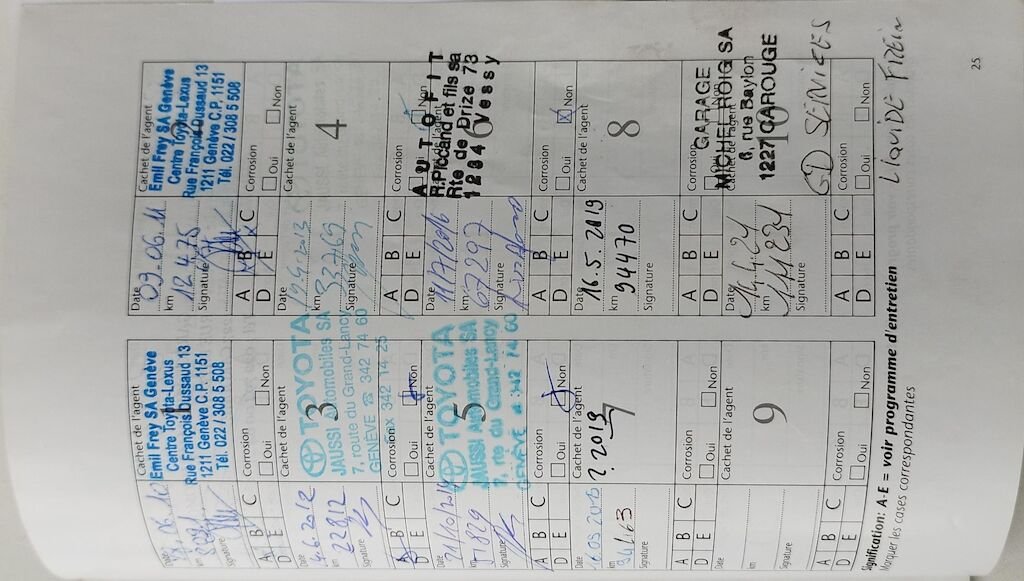 Date
km
Signature
Cachet de l'agent
Emil Frey SA Genève
Centre Toyota-Lexus
Rue François Dussaud 13
1211 Genève C.P. 1151
Tél. 022 / 308 5 508
A B C
D E
Corrosion
Oui Non
Date 09.06.11
km 12 475
Signature
Cachet de l'agent
Emil Frey SA Genève
Centre Toyota-Lexus
Rue François Dussaud 13
1211 Genève C.P. 1151
Tél. 022 / 308 5 508
A B C
D E
Corrosion
Oui Non
Date 4.6.2012
km 22812
Signature
Cachet de l'agent
3
TOYOTA
JAUSSI Automobiles SA
7, route du Grand-Lancy
GENÈVE ☎ 342 74 60
Fax 342 14 25
A B C
D E
Corrosion
Oui Non
Date
km 33769
Signature
Cachet de l'agent
4
A B C
D E
Date
km 51829
Signature
5
TOYOTA
JAUSSI Automobiles SA
7, rte du Grand-Lancy
GENÈVE
A B C
D E
Corrosion
Oui Non
Date 11/7/2016
km 67297
Signature
AUTOFIT
R.Piccand et fils sa
Rte de Drize 73
1234 Vessy
A B C
D E
Corrosion
Oui Non
Date
km
Signature
Cachet de l'agent
7
? 2019
A B C
D E
Corrosion
Oui Non
Date 16.5.2019
km 94470
Signature
Cachet de l'agent
8
A B C
D E
Cachet de l'agent
9
A B C
D E
Corrosion
Oui Non
Date
km 111234
Signature
Cachet de l'agent
10
GARAGE
MICHEL ROING SA
6, rue Baylon
1227 CAROUGE
GD SERVICES
A B C
D E
Corrosion
Oui Non
LIQUIDE FREIN
Signification: A-E = voir programme d'entretien
Marquer les cases correspondantes
25